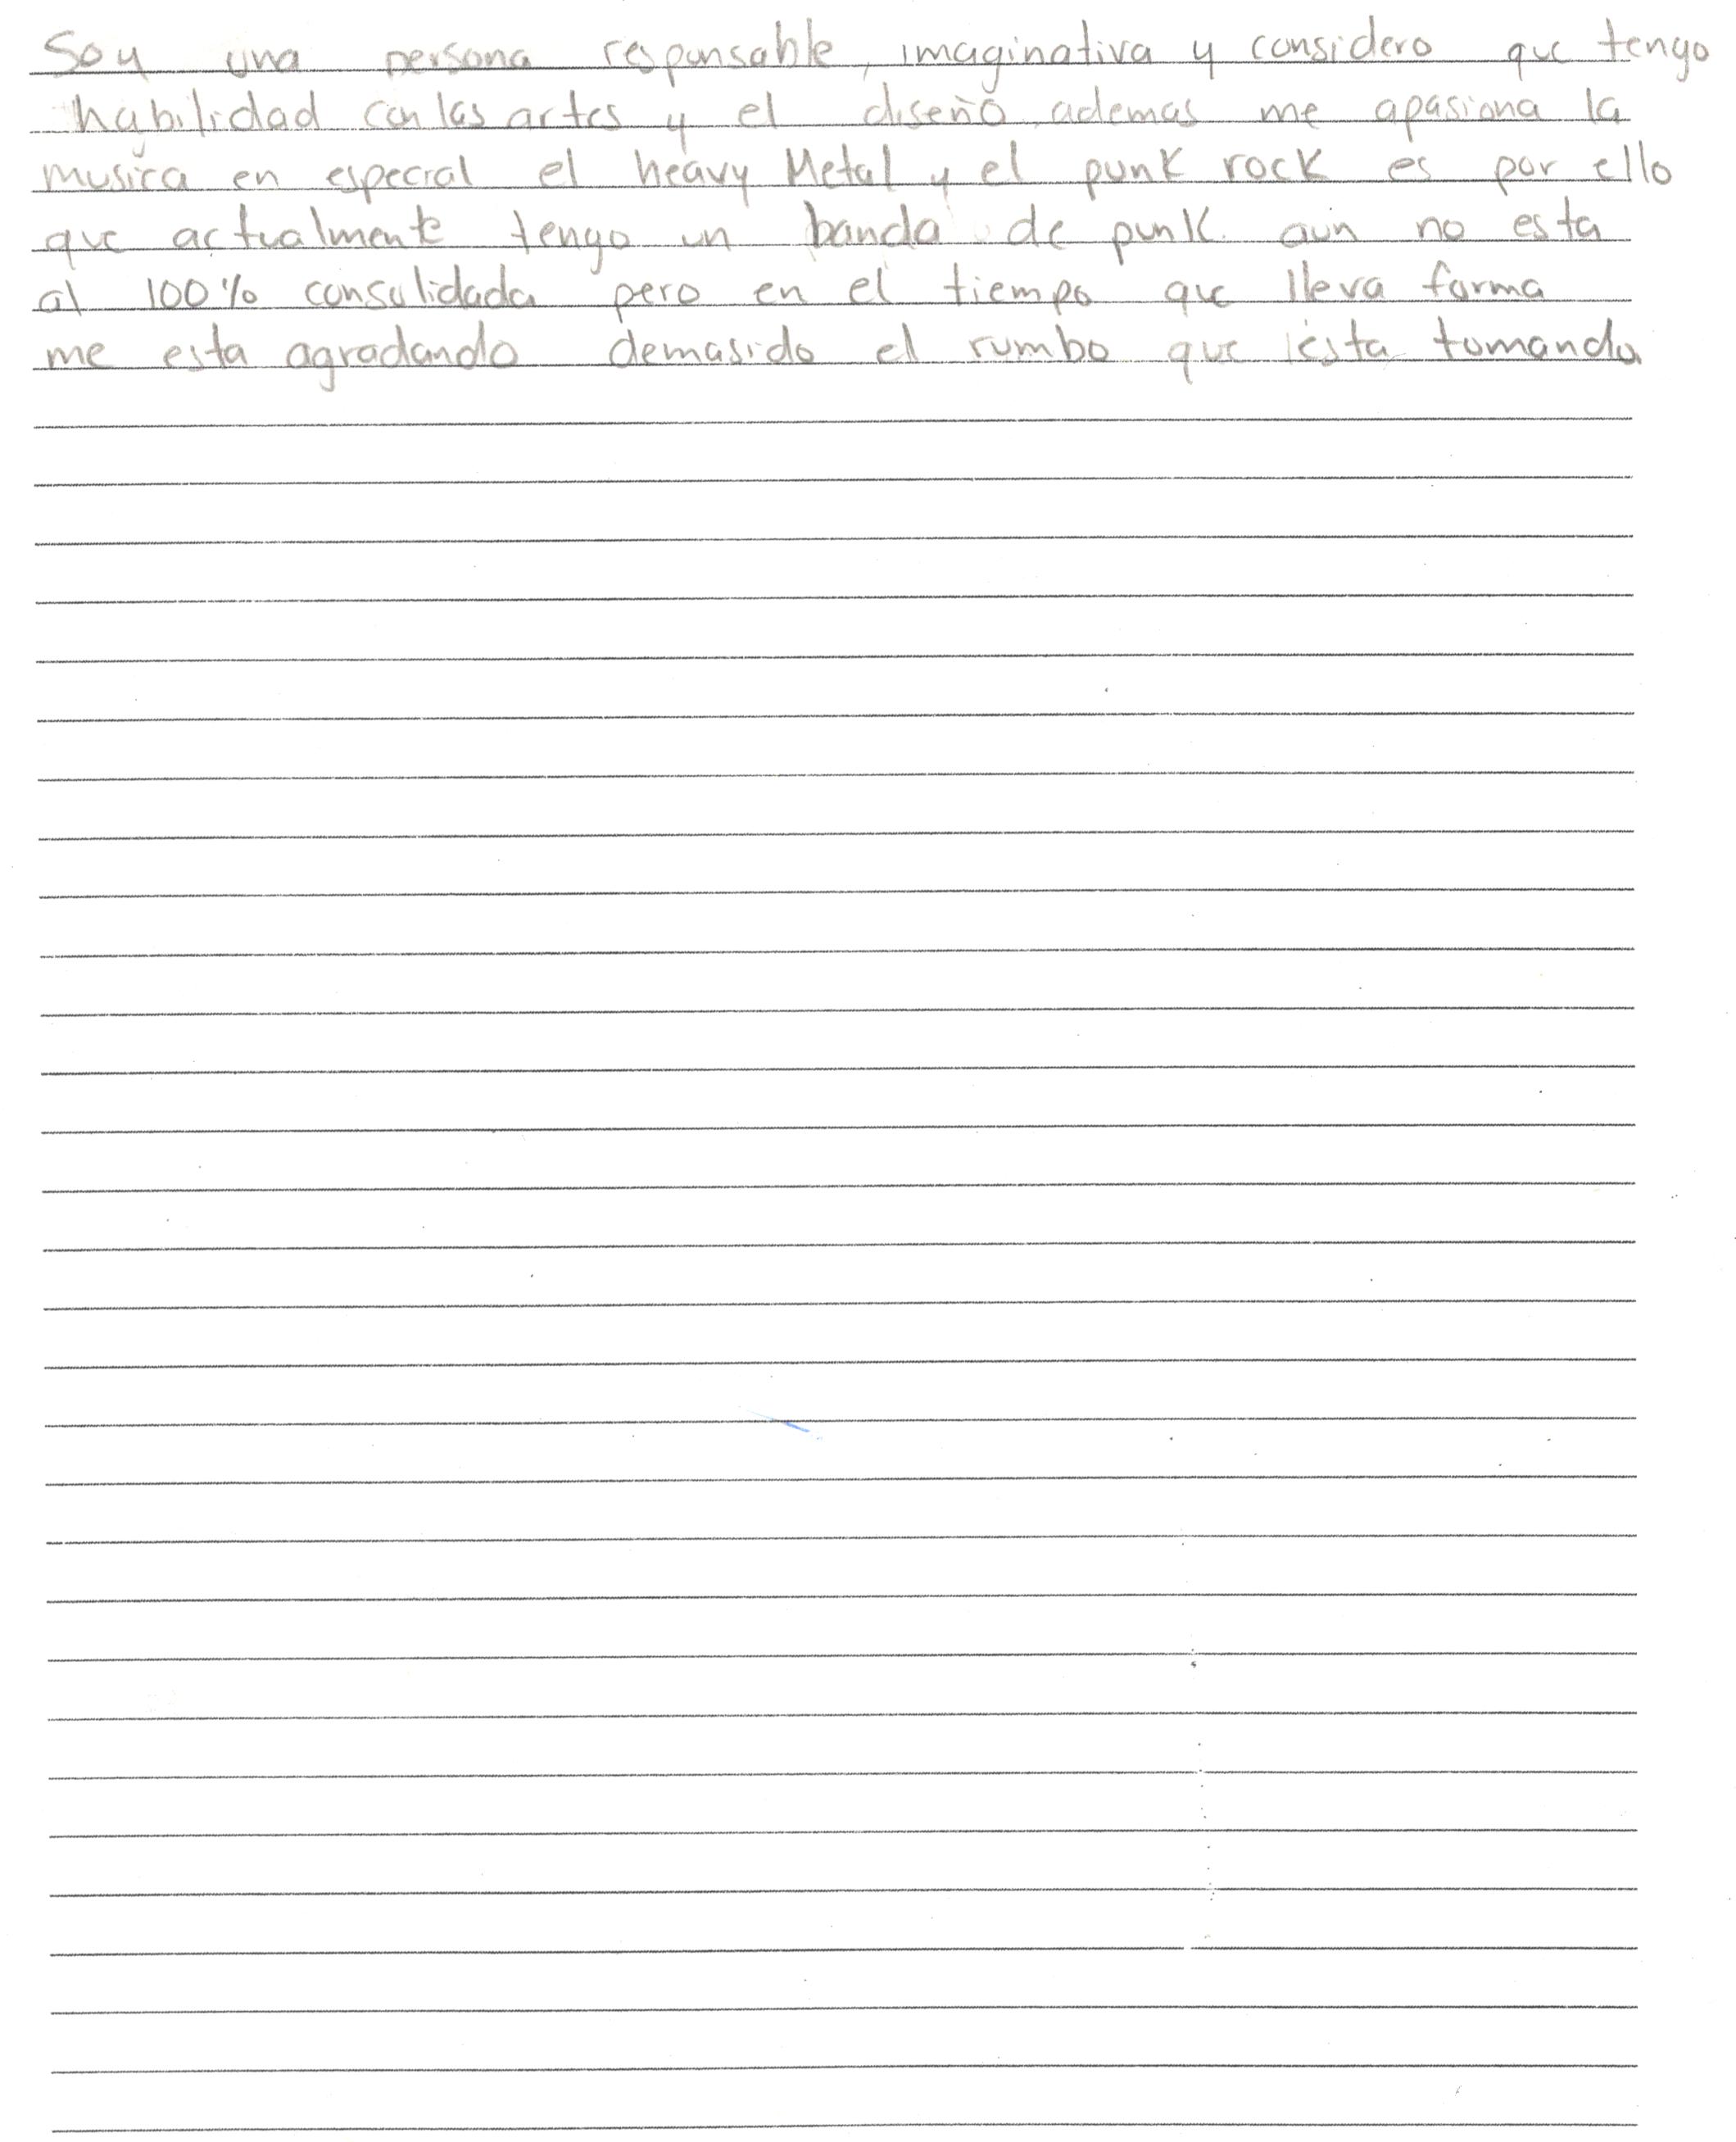 Soy una persona responsable, imaginativa y considero que tengo
habilidad con las artes y el diseño, ademas me apasiona la
musica en especial el heavy Metal y el punk rock es por ello
que actualmente tengo un banda de punk. aún no esta
al 100% consolidada pero en el tiempo que lleva forma
me esta agradando demasido el rumbo que esta tomando